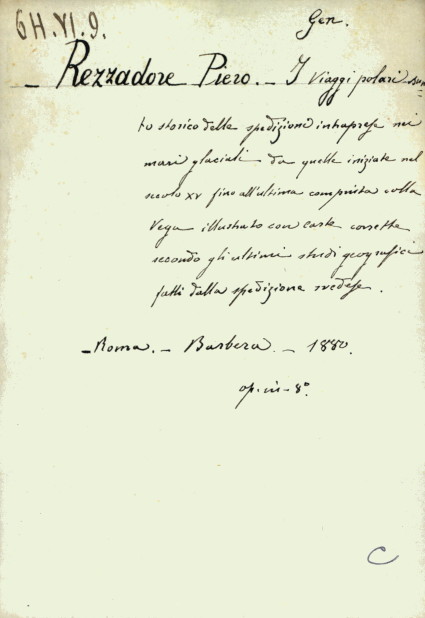 6H.VI.9.
Gen.
– Rezzadore Piero. – I Viaggi polari Sun=
to storico delle spedizioni intraprese nei
mari glaciali da quelle iniziate nel
secolo XV fino all'ultima compiuta colla
Vega illustrato con carte corrette
secondo gli ultimi studi geografici
fatti dalla spedizione svedese.
– Roma. – Barbera. – 1880.
op. in – 8°
C